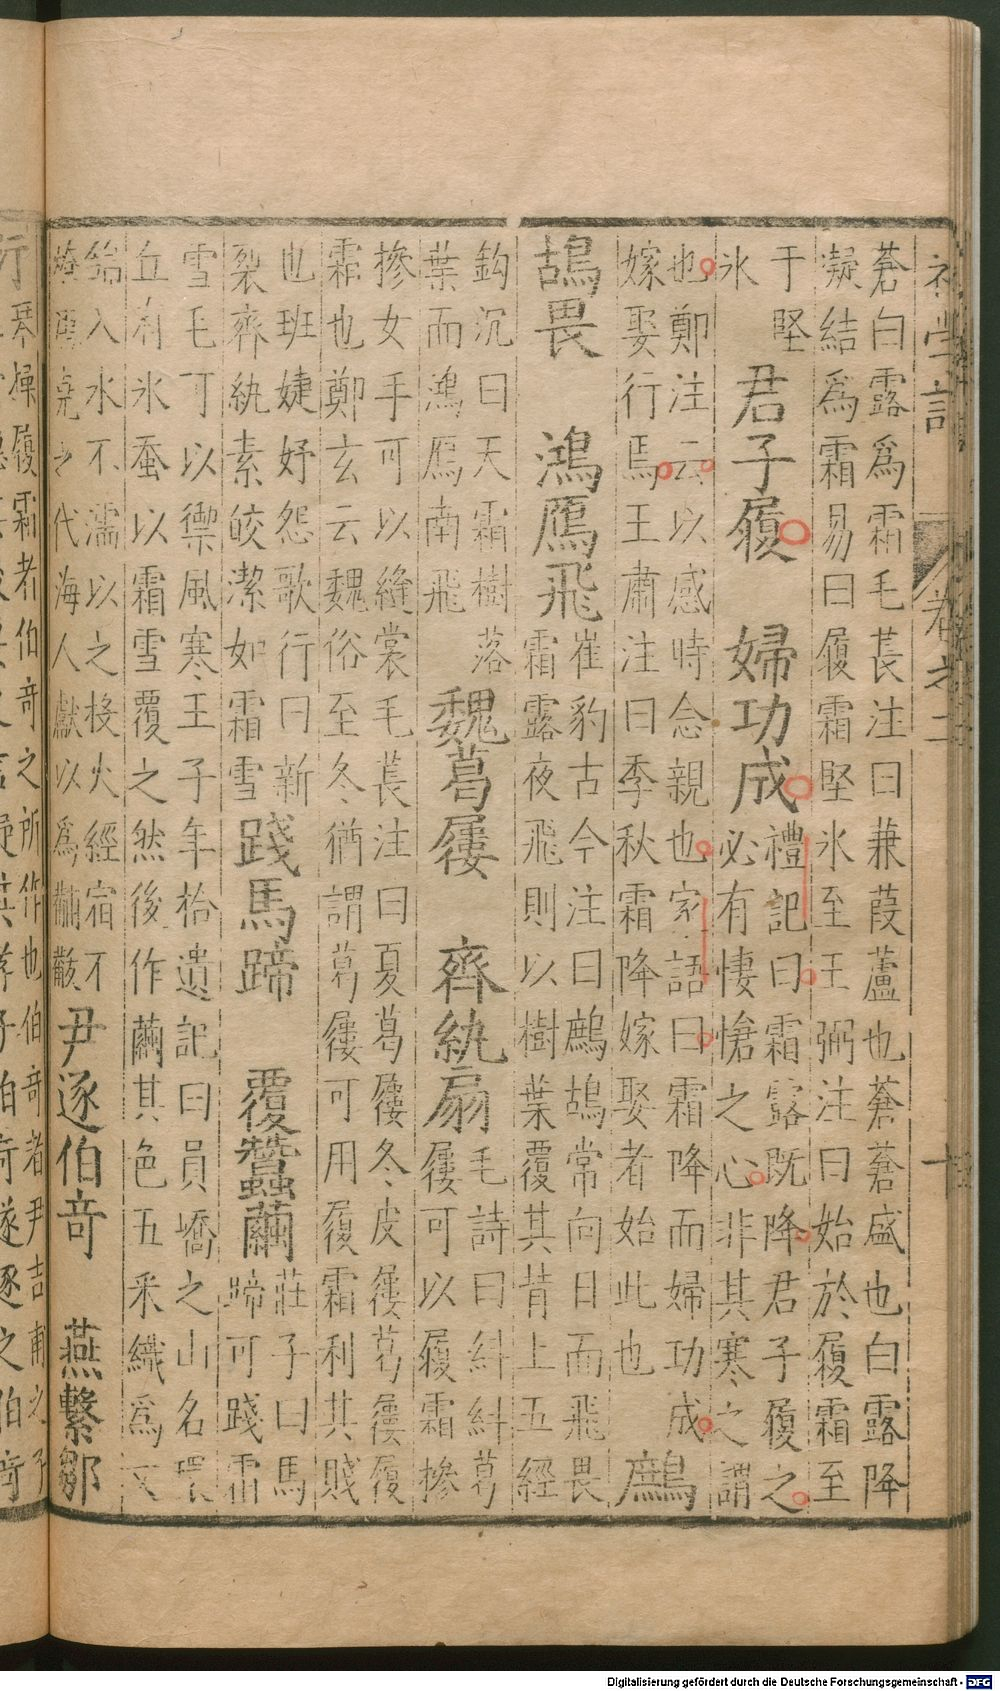 蒼白露爲霜毛萇注曰蒹葭蘆也蒼蒼盛也白露降
凝結爲霜易曰履霜堅氷至王弼注曰始於履霜至
于堅
氷
君子履 婦功成
禮記曰霜露既降君子履之
必有悽愴之心非其寒之謂
也鄭注云以感時念親也家語曰霜降而婦功成
嫁娶行焉王肅注曰季秋霜降嫁娶者始此也
鷓
鴣畏 鴻鴈飛
崔豹古今注曰鷓鴣常向日而飛畏
霜露夜飛則以樹葉覆其背上五經
鈎沉曰天霜樹落
葉而鴻鴈南飛
魏葛屨 齊紈扇
毛詩曰糾糾葛
屨可以履霜摻
摻女手可以縫裳毛萇注曰夏葛屨冬皮屨葛屨履
霜也鄭玄云魏俗至冬猶謂葛屨可用履霜利其賤
也班婕妤怨歌行曰新
裂齊紈素皎潔如霜雪
踐馬蹄 覆蠶繭
莊子曰馬
蹄可踐霜
雪毛可以禦風寒王子年拾遺記曰員嶠之山名環
丘有氷蚕以霜雪覆之然後作繭其色五釆織爲文
入水不濡以之投火經宿不
之代海人獻以爲黼黻
尹逐伯奇 燕繫鄒
衍
琴操履霜者伯奇之所作也伯奇者尹吉甫之子
卷之二